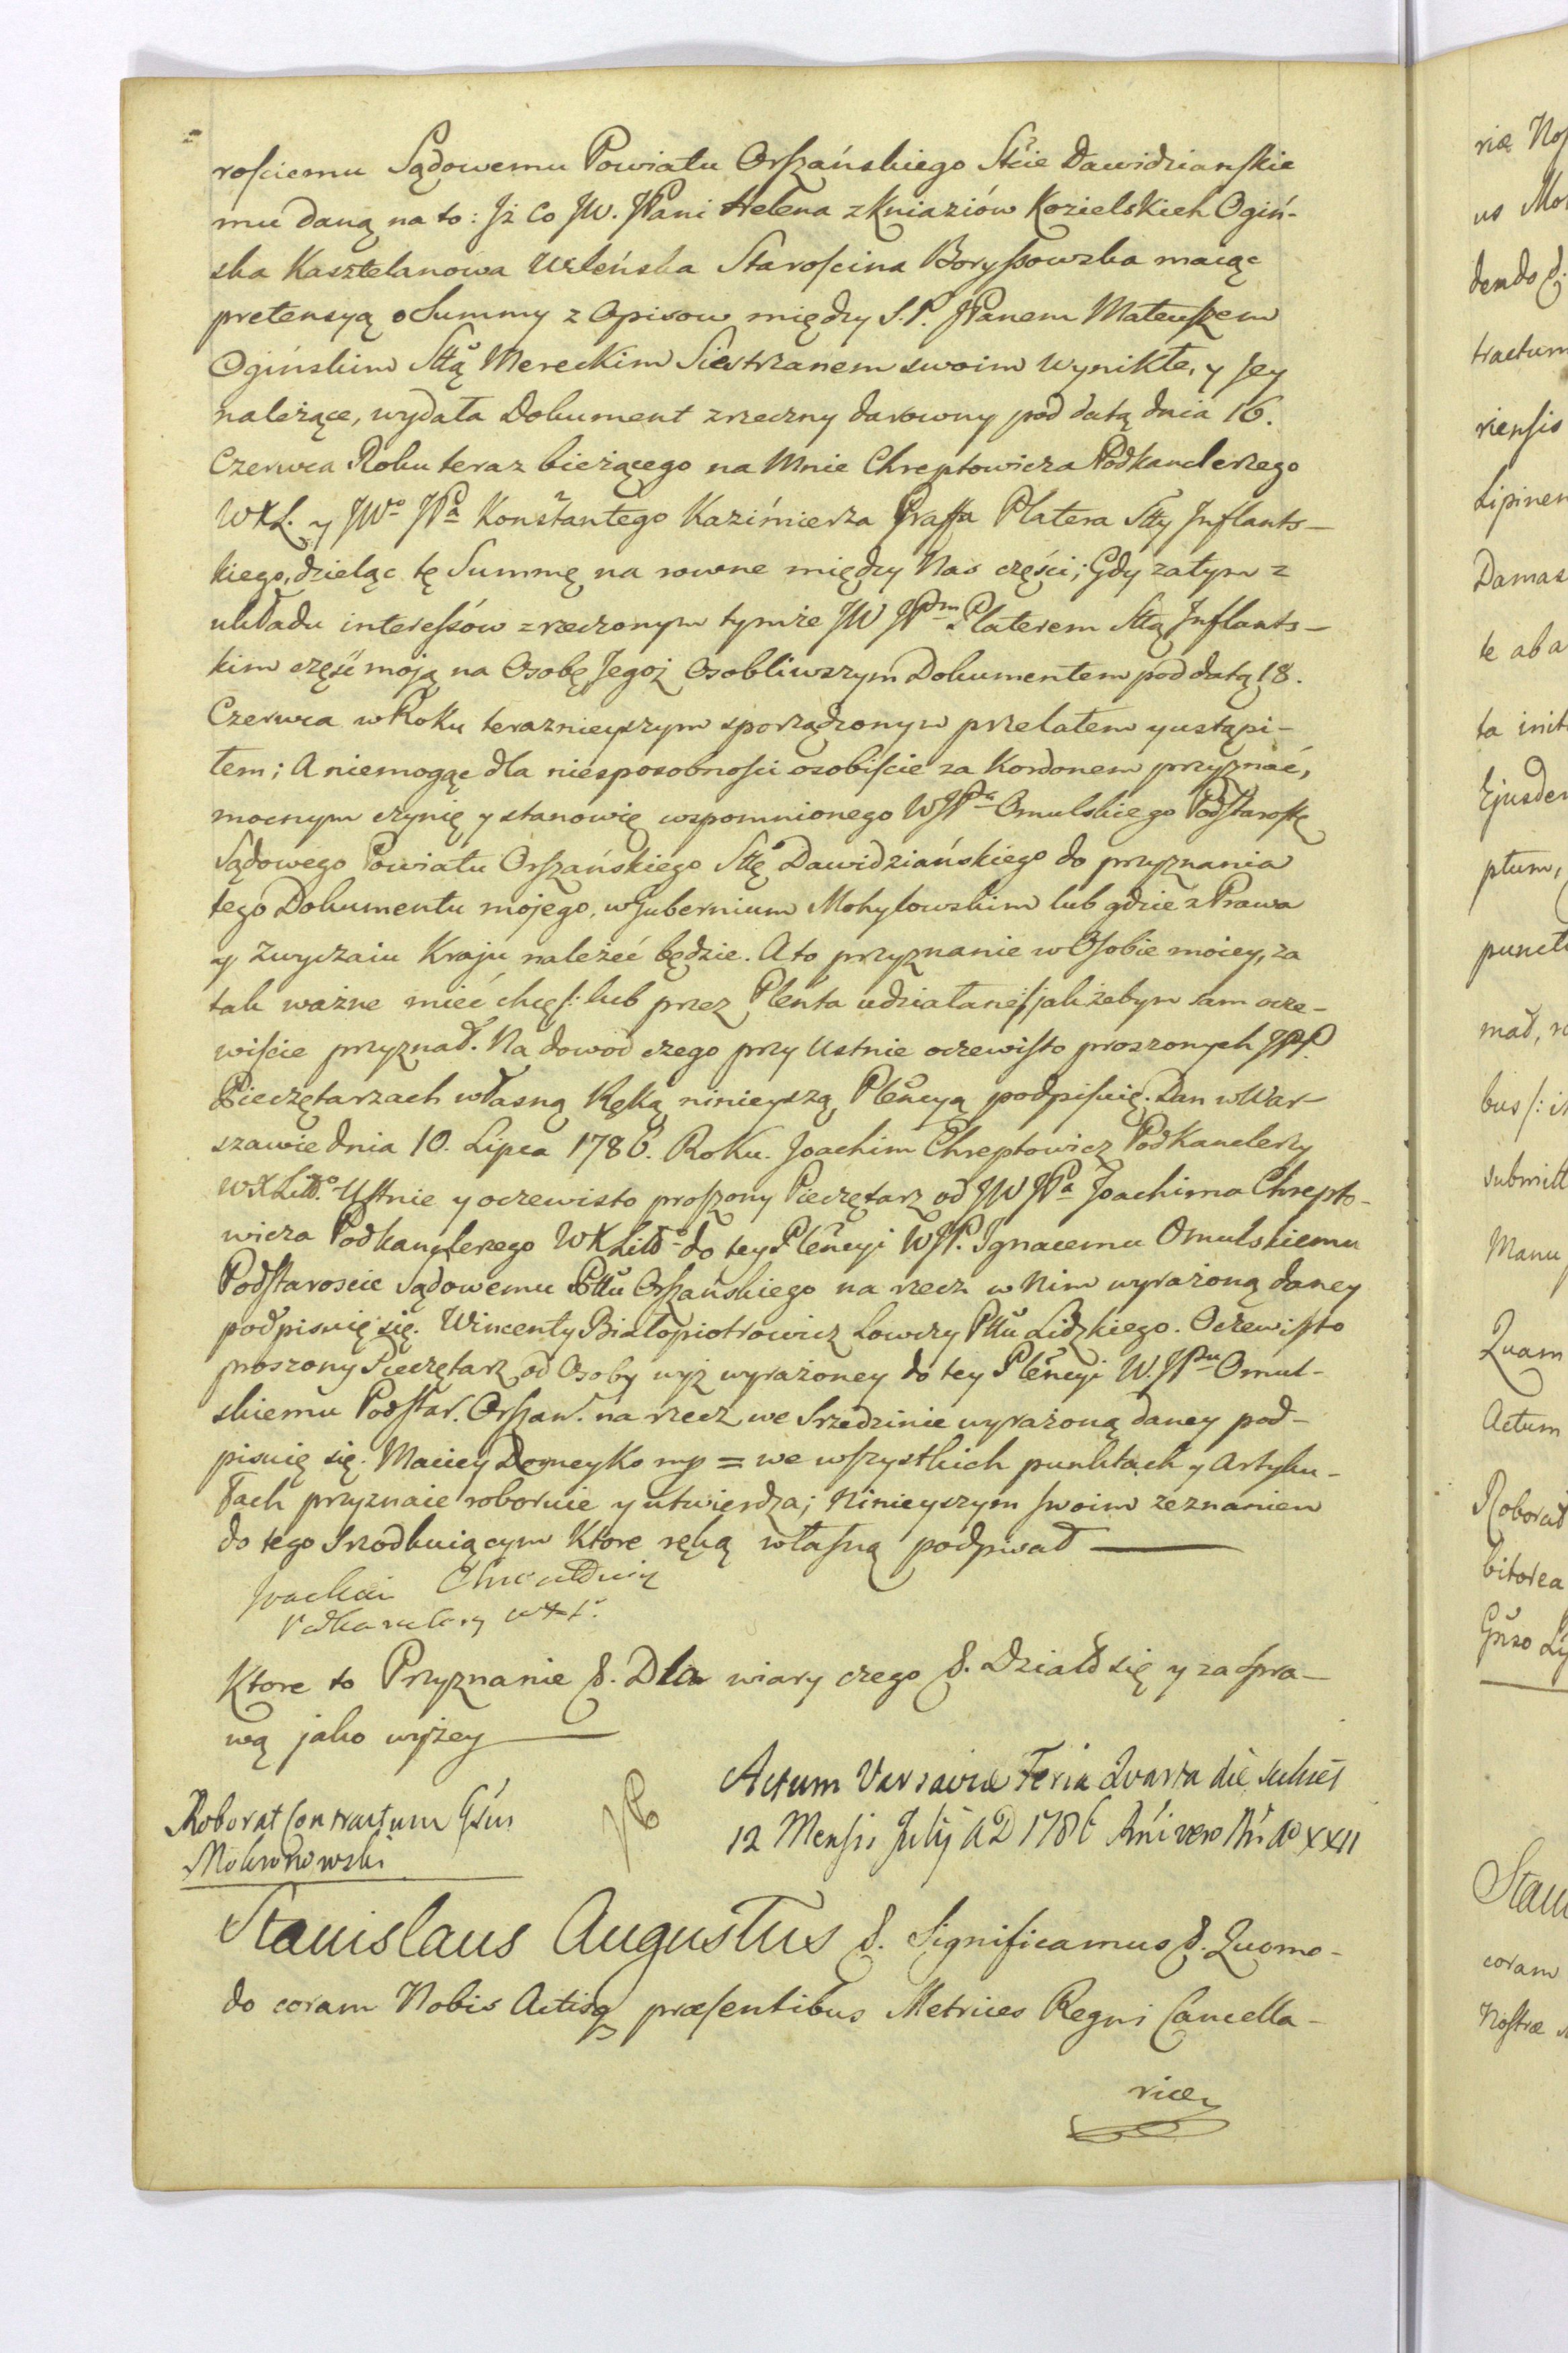 rosciemu Sądowemu Powiatu Orszańskiego Stcie Dawidzianskie
mu daną na to: Jż Co JW. JPani Helena z Kniaziów Kozielskich Ogiń-
ska Kasztelanowa Wileńska Starościna Boryssowska maiąc
pretensyą o Summy z Opisow między S.P. JPanem Mateuszem
Ogińskim Sttą Mereckim Siestrzanem swoim wynikłe, y Jey
należące, wydała Dokument zrzeczny darowny pod datą dnia 16.
Czerwca Roku teraz bieżącego na Mnie Chreptowicza Podkanclerzego
WXL. y JWo JPa Konstantego Kazimierza Graffa Platera Stty Inflants-
kiego, dzieląc tę Summę na rowne między Nas części; Gdy zatym z
układu interessów z rzeczonym tymże JW JPm Platerem Sttą Inflants-
kim część moją na Osobę Jegoż Osobliwszym Dokumentem pod datą 18.
Czerwca w Roku teraznieyszym sporządzonym przelałem y ustąpi-
łem; A niemogąc dla niesposobnosci osobiscie za Kordonem przyznać,
mocnym czynię y stanowię wspomnionego WJPa Omulskiego Podstarostę
Sądowego Powiatu Orszańskiego Sttę Dawidziańskiego do przyznania
tego Dokumentu mojego, w Gubernium Mohylowskim lub gdzie z Prawa
y Zwyczaiu Kraju należeć będzie. A to przyznanie w Osobie moiey, za
tak ważne mieć chcę /: lub przez Plenta udziałane :/ jak żebym sam ocze-
wiscie przyznał. Na dowod czego przy Ustnie oczewisto proszonych JPP.
Pieczętarzach własną Ręką ninieyszą Plencyą podpisuię. Dan w War
szawie dnia 10. Lipca 1786. Roku. Joachim Chreptowicz Podkanclerzy
WXLitto. Ustnie y oczewisto proszony Pieczętarz od JW JPa Joachima Chrepto-
wicza Podkanclerzego WXLitto do tey Plencyi WJP. Ignacemu Omulskiemu
Podstaroscie Sądowemu Pttu Orszańskiego na rzecz w Nim wyrażoną daney
podpisuię się. Wincenty Białopiotrowicz Łowczy Pttu Lidzkiego. Oczewisto
proszony Pieczętarz od Osoby wyż wyrażoney do tey Plencyi W. JPu Omul-
skiemu Podstar. Orszań. na rzecz we Srzedzinie wyrażoną daney pod-
pisuię się. Maciey Domeyko mp = we wszystkich punktach y Artyku-
łach przyznaie roboruie y utwierdza; Ninieyszym swoim zeznaniem
do tego Srzodkuiącym Ktore ręką własną podpisał
Joachim Chreptowicz
Podkanclerzy WXL.
Ktore to Przyznanie &. Dla wiary czego &. Działo się y za Spra-
wą jako wyżey
Roborat Contractum Gsus
Mokronowski
Actum Varsaviæ Feria Quarta die scilicet
12 Mensis Julij AD 1786 Rni vero Nri Ao XXII
Stanislaus Augustus &. Significamus &. Quomo-
do coram Nobis Actisq præsentibus Metrices Regni Cancella-
riæ